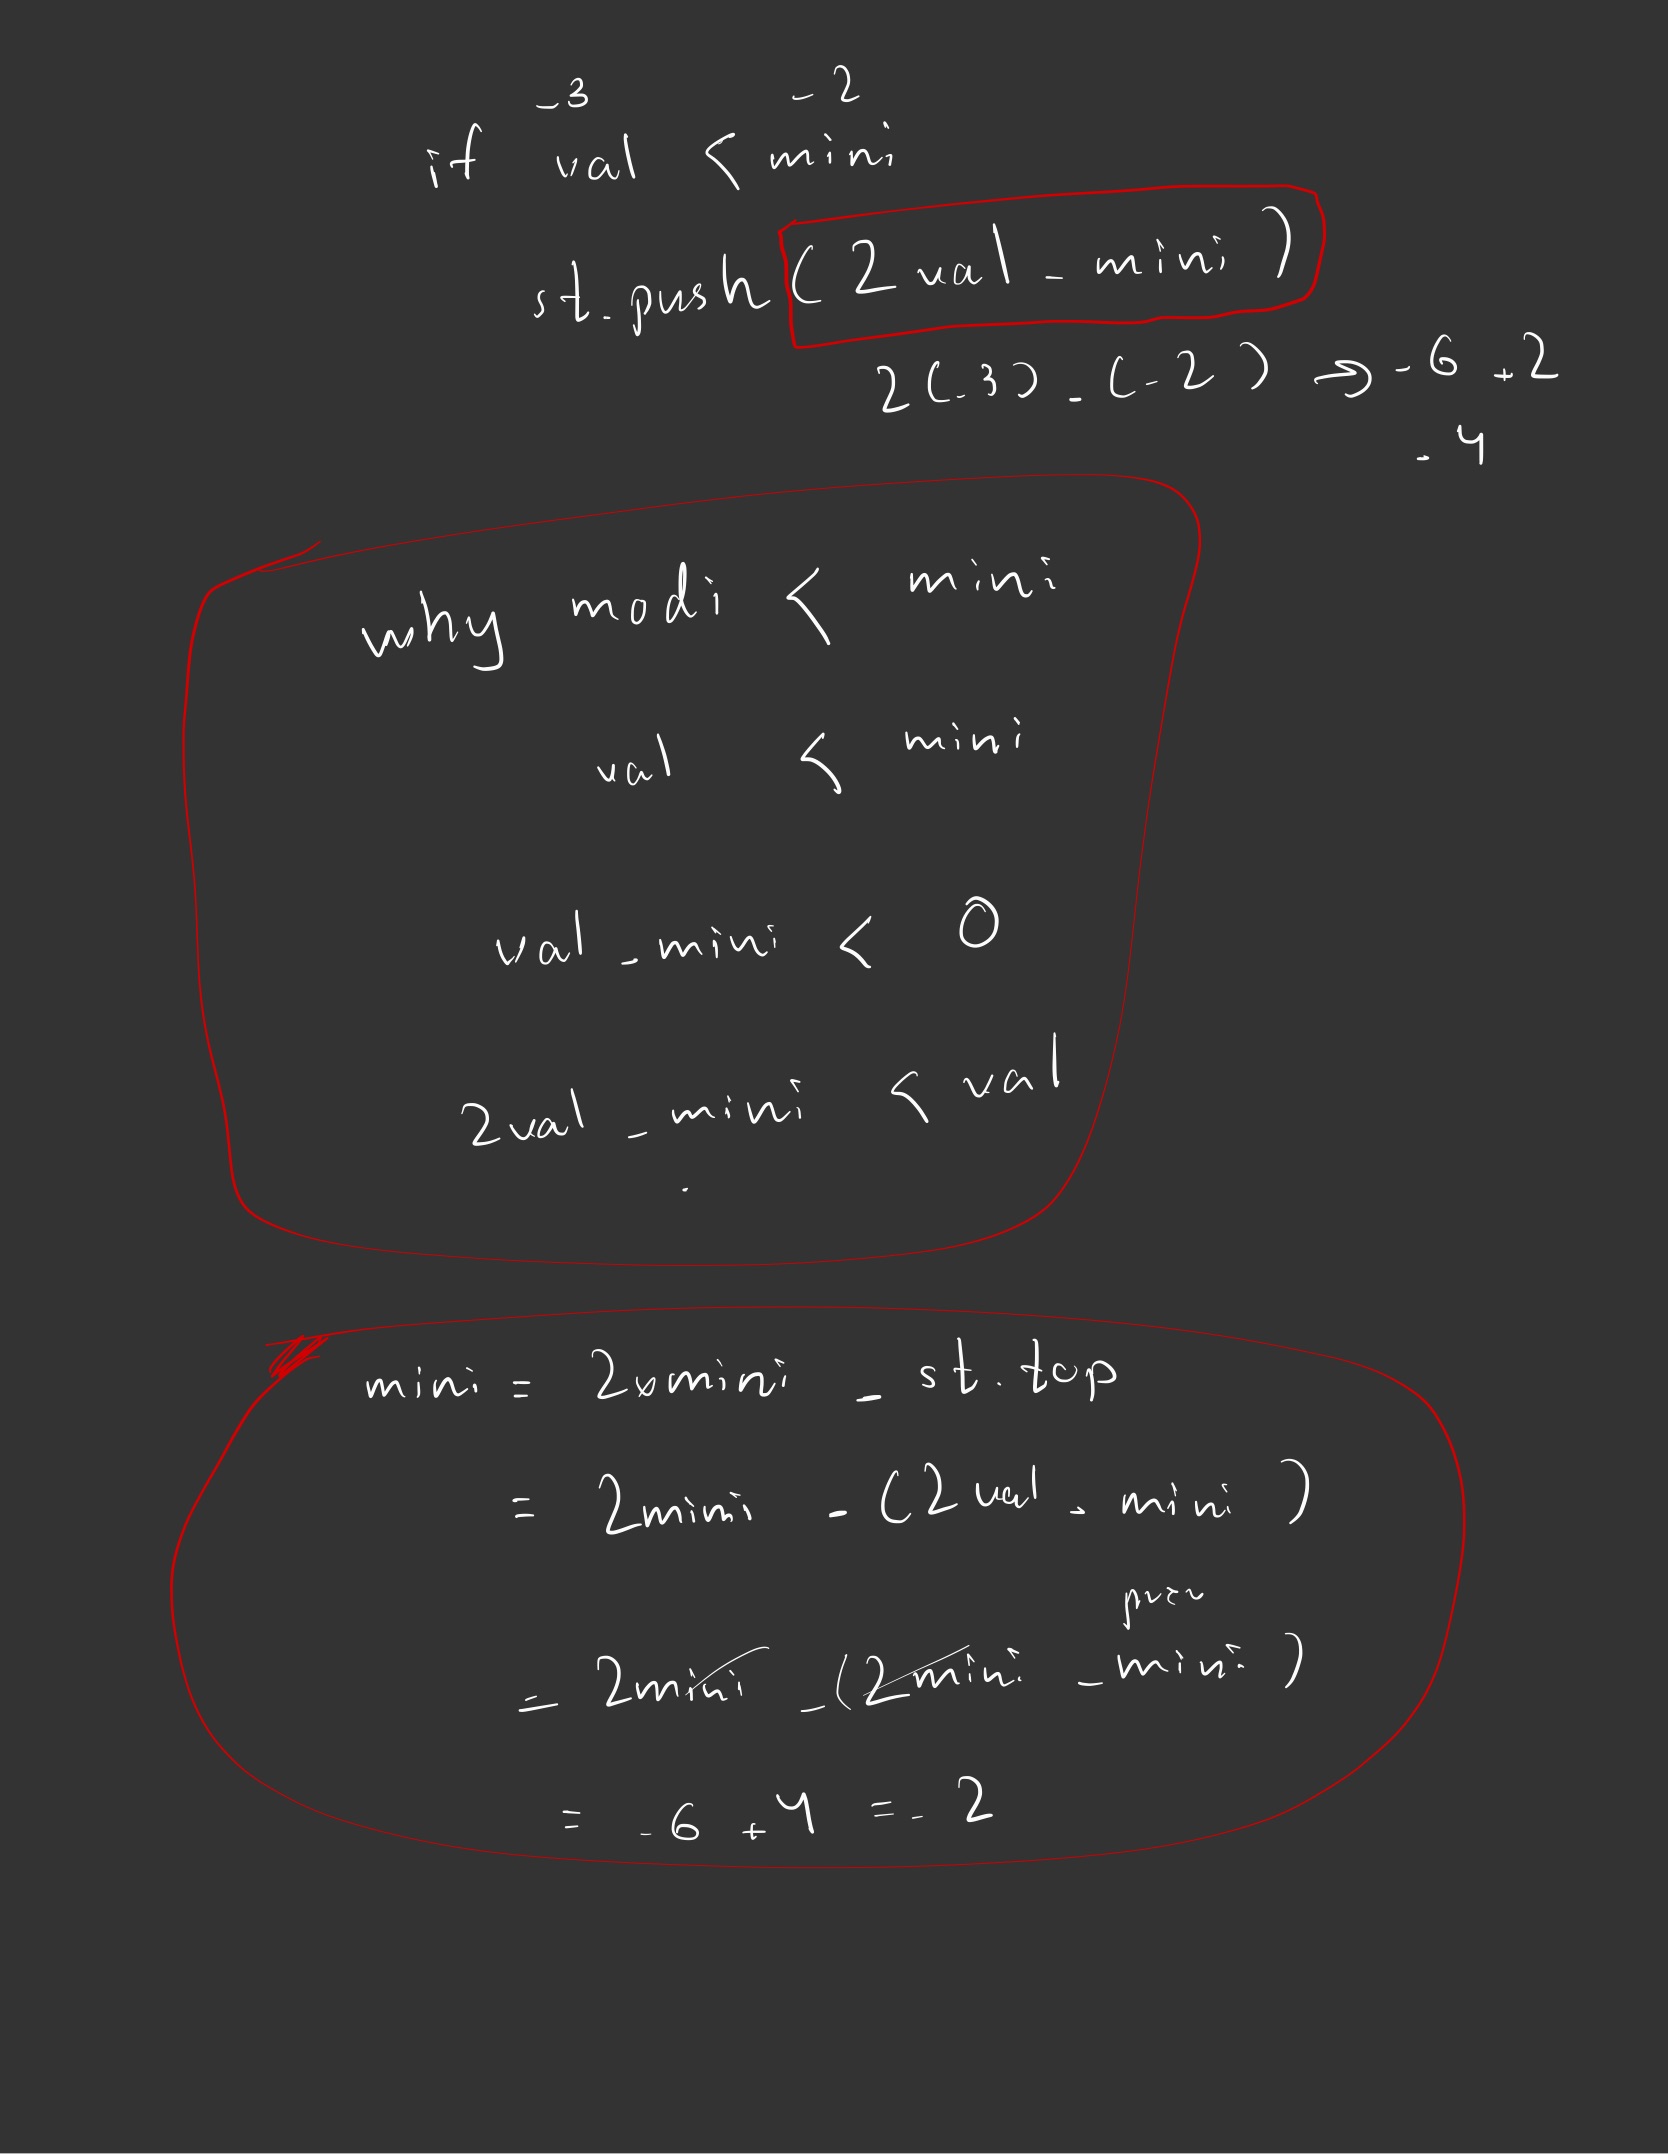 -3 -2
if val < mini
st.push(2val - mini)
2(-3) - (-2) → -6 +2
-4
why modi < mini
val < mini
val - mini < 0
2val - mini < val
mini = 2xmini - st.top
= 2mini - (2val - mini)
prev
= 2mini - (2mini - mini)
= -6 + 4 = -2